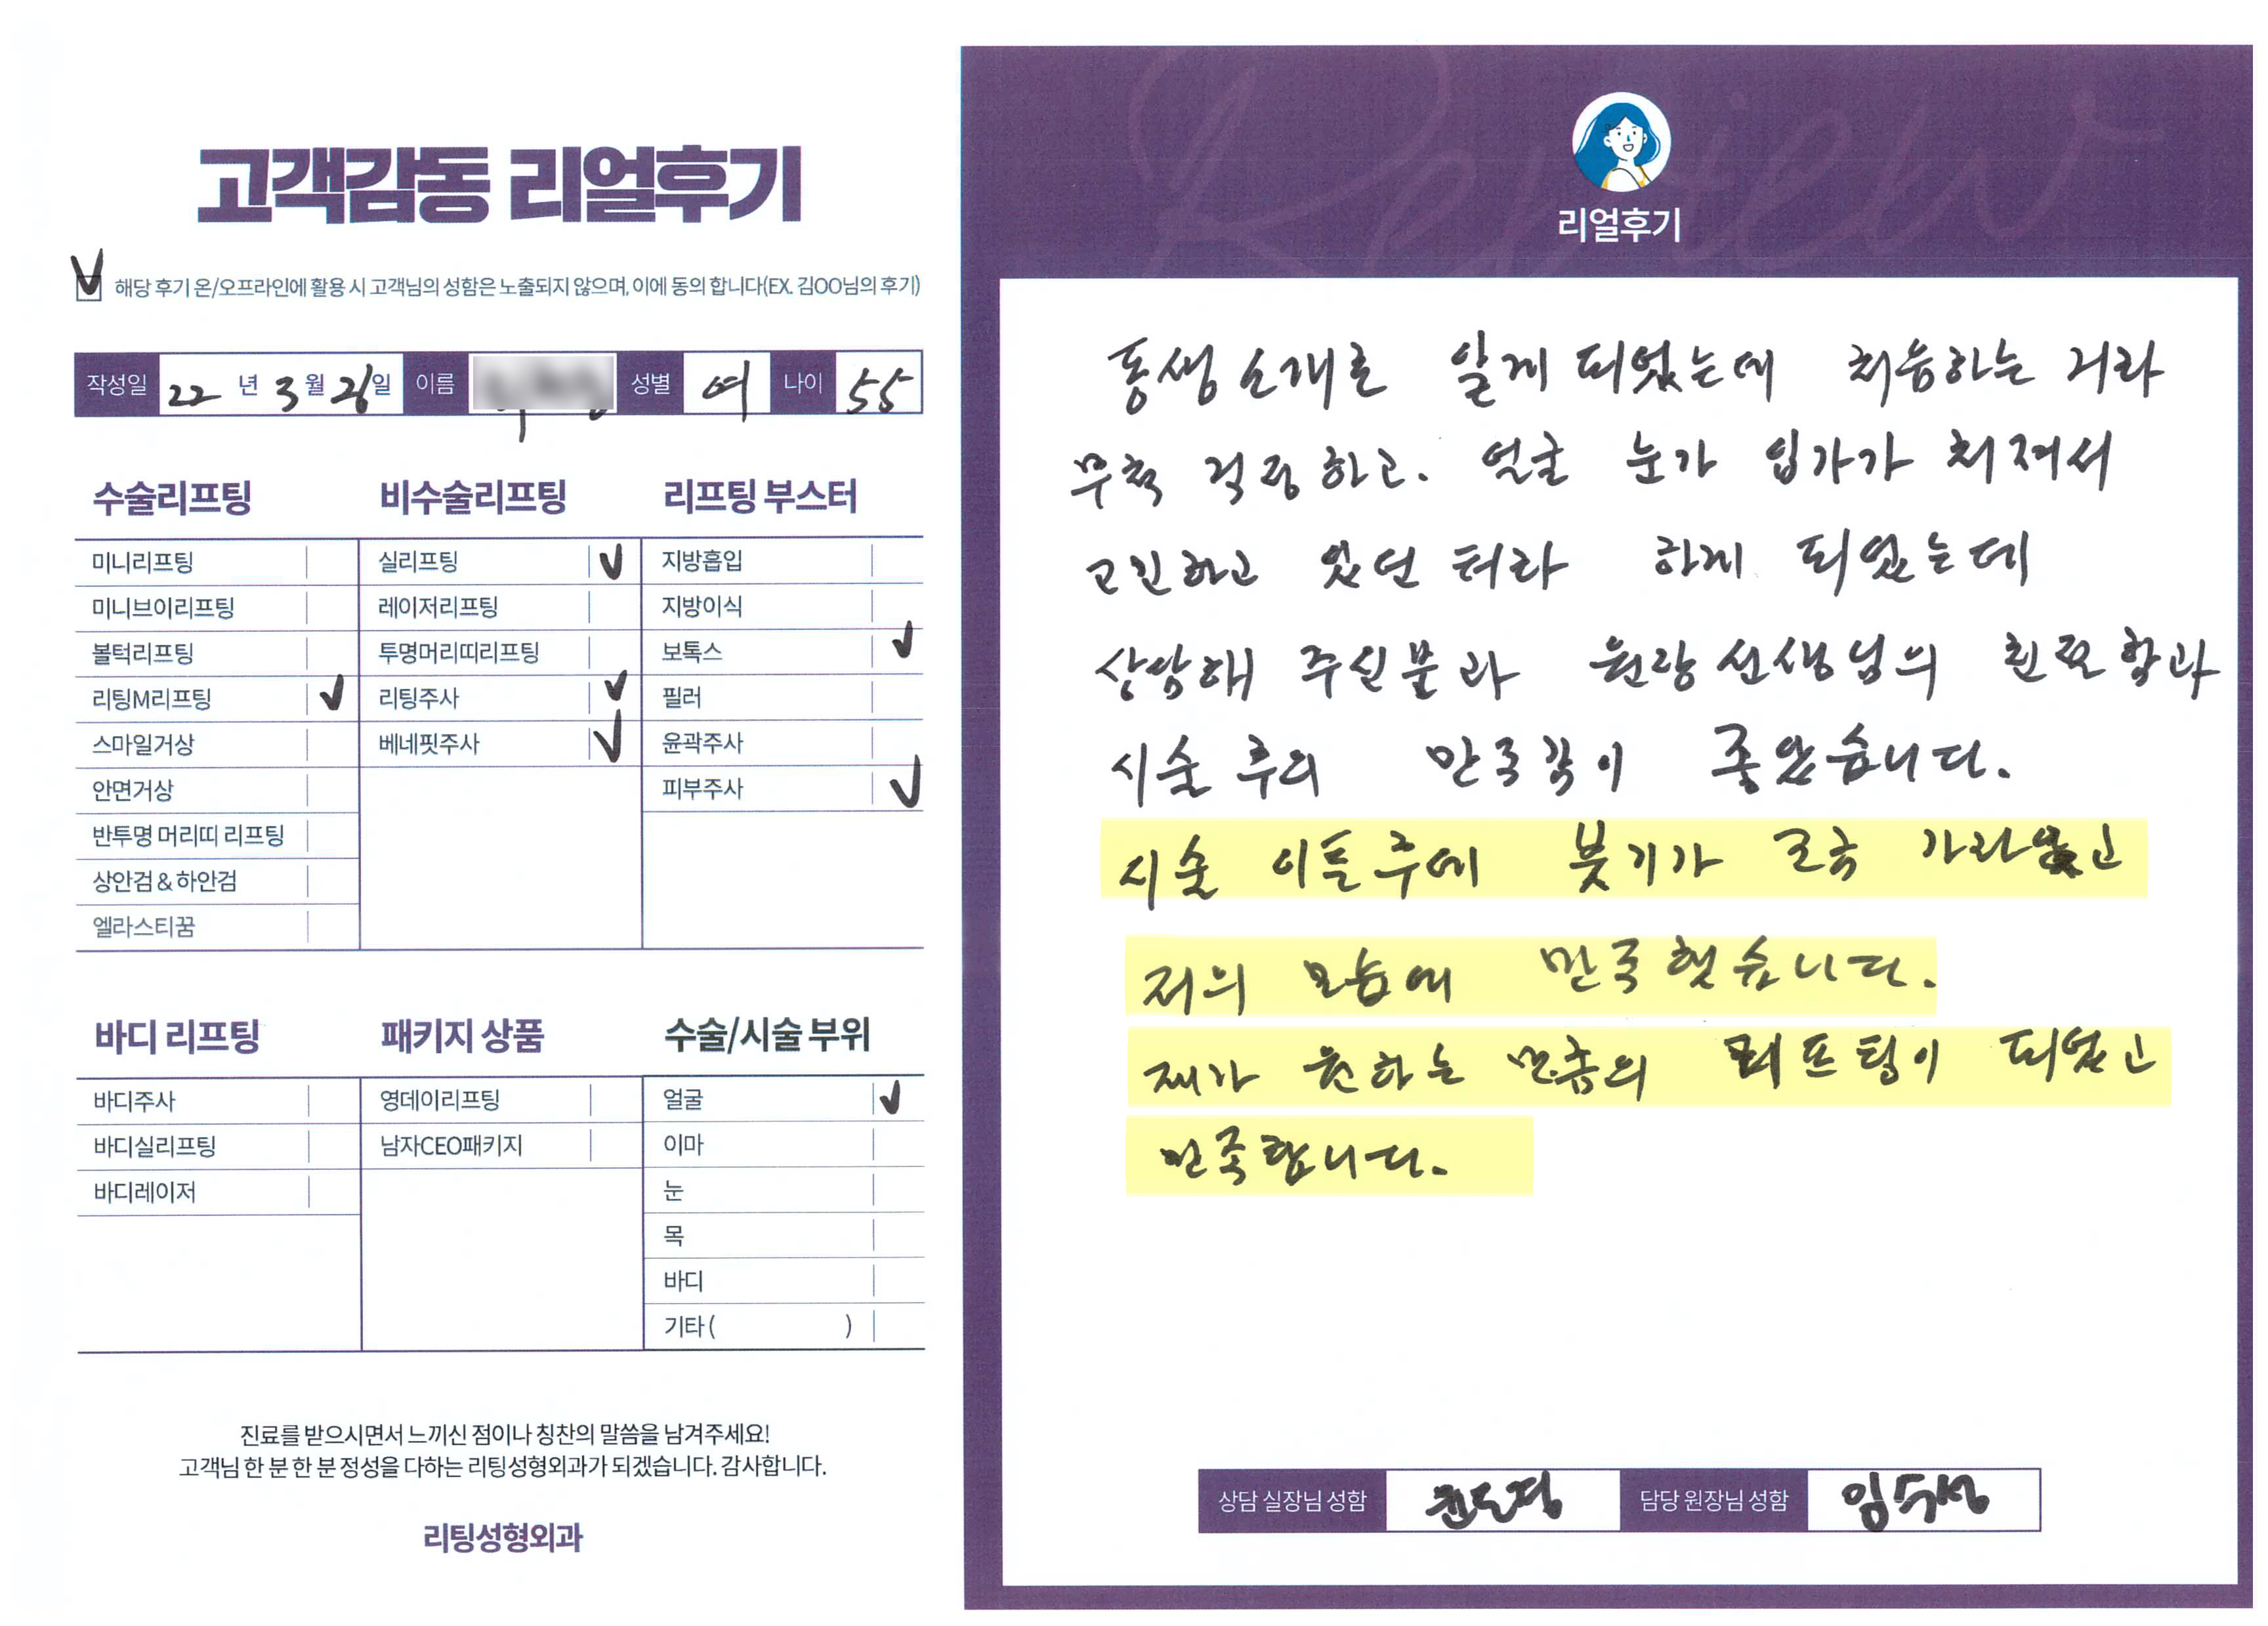 고객감동 리얼후기
해당 후기 온/오프라인에 활용 시 고객님의 성함은 노출되지 않으며, 이에 동의 합니다(EX. 김OO님의 후기)
작성일 22 년 3 월 26 일 이름 성별 여 나이 55
수술리프팅
미니리프팅
미니브이리프팅
볼턱리프팅
리팅M리프팅
스마일거상
안면거상
반투명 머리띠 리프팅
상안검 & 하안검
엘라스티꿈
비수술리프팅
실리프팅
레이저리프팅
투명머리띠리프팅
리팅주사
베네핏주사
리프팅 부스터
지방흡입
지방이식
보톡스
필러
윤곽주사
피부주사
바디 리프팅
바디주사
바디실리프팅
바디레이저
패키지 상품
영데이리프팅
남자CEO패키지
수술/시술 부위
얼굴
이마
눈
목
바디
기타 ( )
진료를 받으시면서 느끼신 점이나 칭찬의 말씀을 남겨주세요!
고객님 한 분 한 분 정성을 다하는 리팅성형외과가 되겠습니다. 감사합니다.
리팅성형외과
Review
리얼후기
동생소개로 알게 되었는데 처음하는 거라
무척 걱정하고. 얼굴 눈가 입가가 처져서
고민하고 있던 터라 하게 되었는데
상담해 주신분과 원장선생님의 친절함과
시술 후의 만족감이 좋았습니다.
시술 이틀후에 붓기가 조금 가라앉고
저의 모습에 만족했습니다.
제가 원하는 만큼의 리프팅이 되었고
만족합니다.
상담 실장님 성함 담당 원장님 성함 임수성